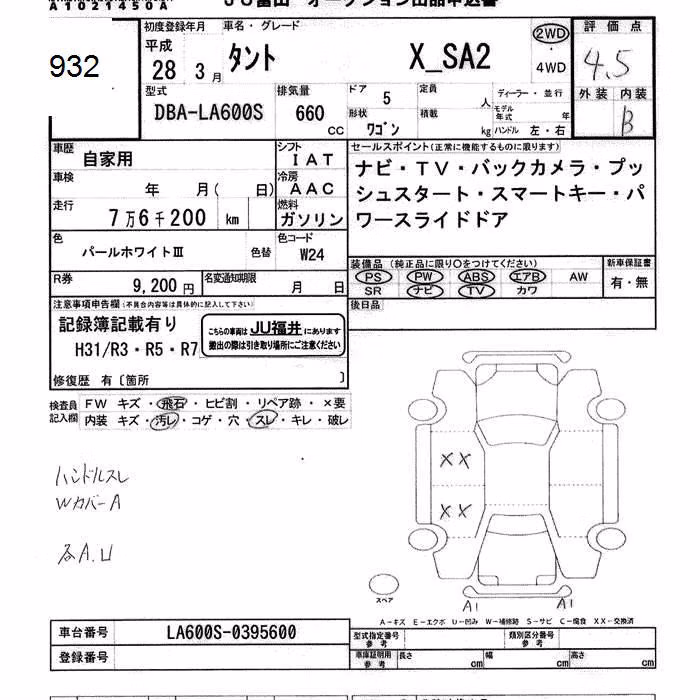 A1021450A
JU富山 オークション出品申込書
932
初度登録年月
平成
28 3 月
車名・グレード
タント X_SA2
2WD
4WD
評価点
4.5
外装 内装
B
型式
DBA-LA600S
排気量
660
CC
ドア
5
形状
ワゴン
定員
人
積載
kg
ディーラー・並行
モデル
年式 年
ハンドル 左・右
車歴
自家用
車検
年 月( 日)
走行
7万6千200 km
シフト
IAT
冷房
AAC
燃料
ガソリン
セールスポイント(正常に機能するものに限ります)
ナビ・TV・バックカメラ・プッ
シュスタート・スマートキー・パ
ワースライドドア
色
パールホワイトⅢ
色替
色コード
W24
装備品 (純正品に限り○をつけてください)
PS PW ABS エアB AW
SR ナビ TV カワ
新車保証書
有・無
R券
9,200 円
名変通知期限
月 日
後日品
注意事項申告欄(不具合内容等は具体的に記入して下さい)
記録簿記載有り
H31/R3・R5・R7
こちらの車両は JU福井 にあります
搬出の際は引き取り場所にご注意ください
修復歴 有〔箇所 〕
検査員
記入欄
FW キズ・飛石・ヒビ割・リペア跡・×要
内装 キズ・汚レ・コゲ・穴・スレ・キレ・破レ
ハンドルスレ
WカバーA
各A.U
XX
XX
スペア
A1 A1
A-キズ E-エクボ U-凹み W-補修跡 S-サビ C-腐食 XX-交換済
車台番号
LA600S-0395600
登録番号
型式指定番号
参考
類別区分番号
参考
車庫証明用
参考
長さ cm
幅 cm
高さ cm